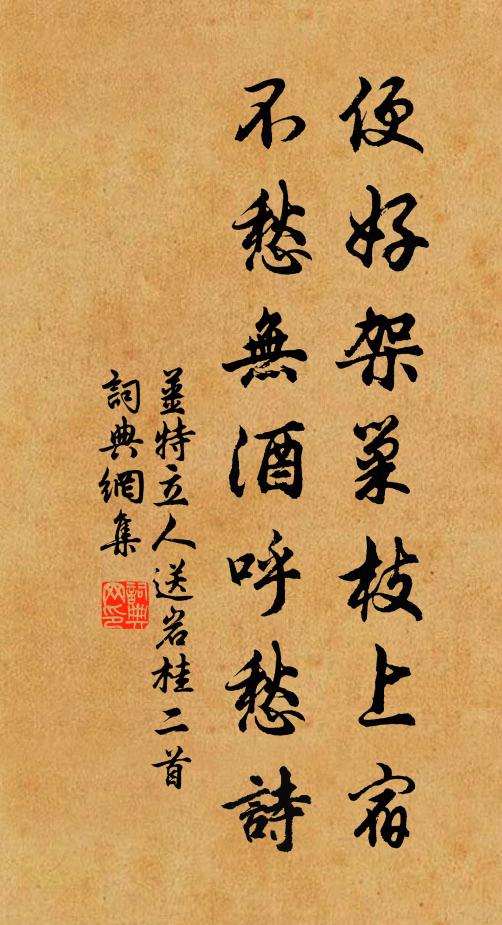 便好架巢枝上宿
不愁無酒呼愁詩
薑特立人送岩桂二首
詞典網集
詞典
网印